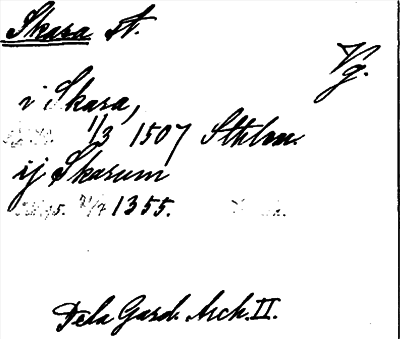 Skara st.
Vg.
i Skara,
1/3 1507 Sthlm.
ij Skarum
1355.
Dela Gard. Arch. II.